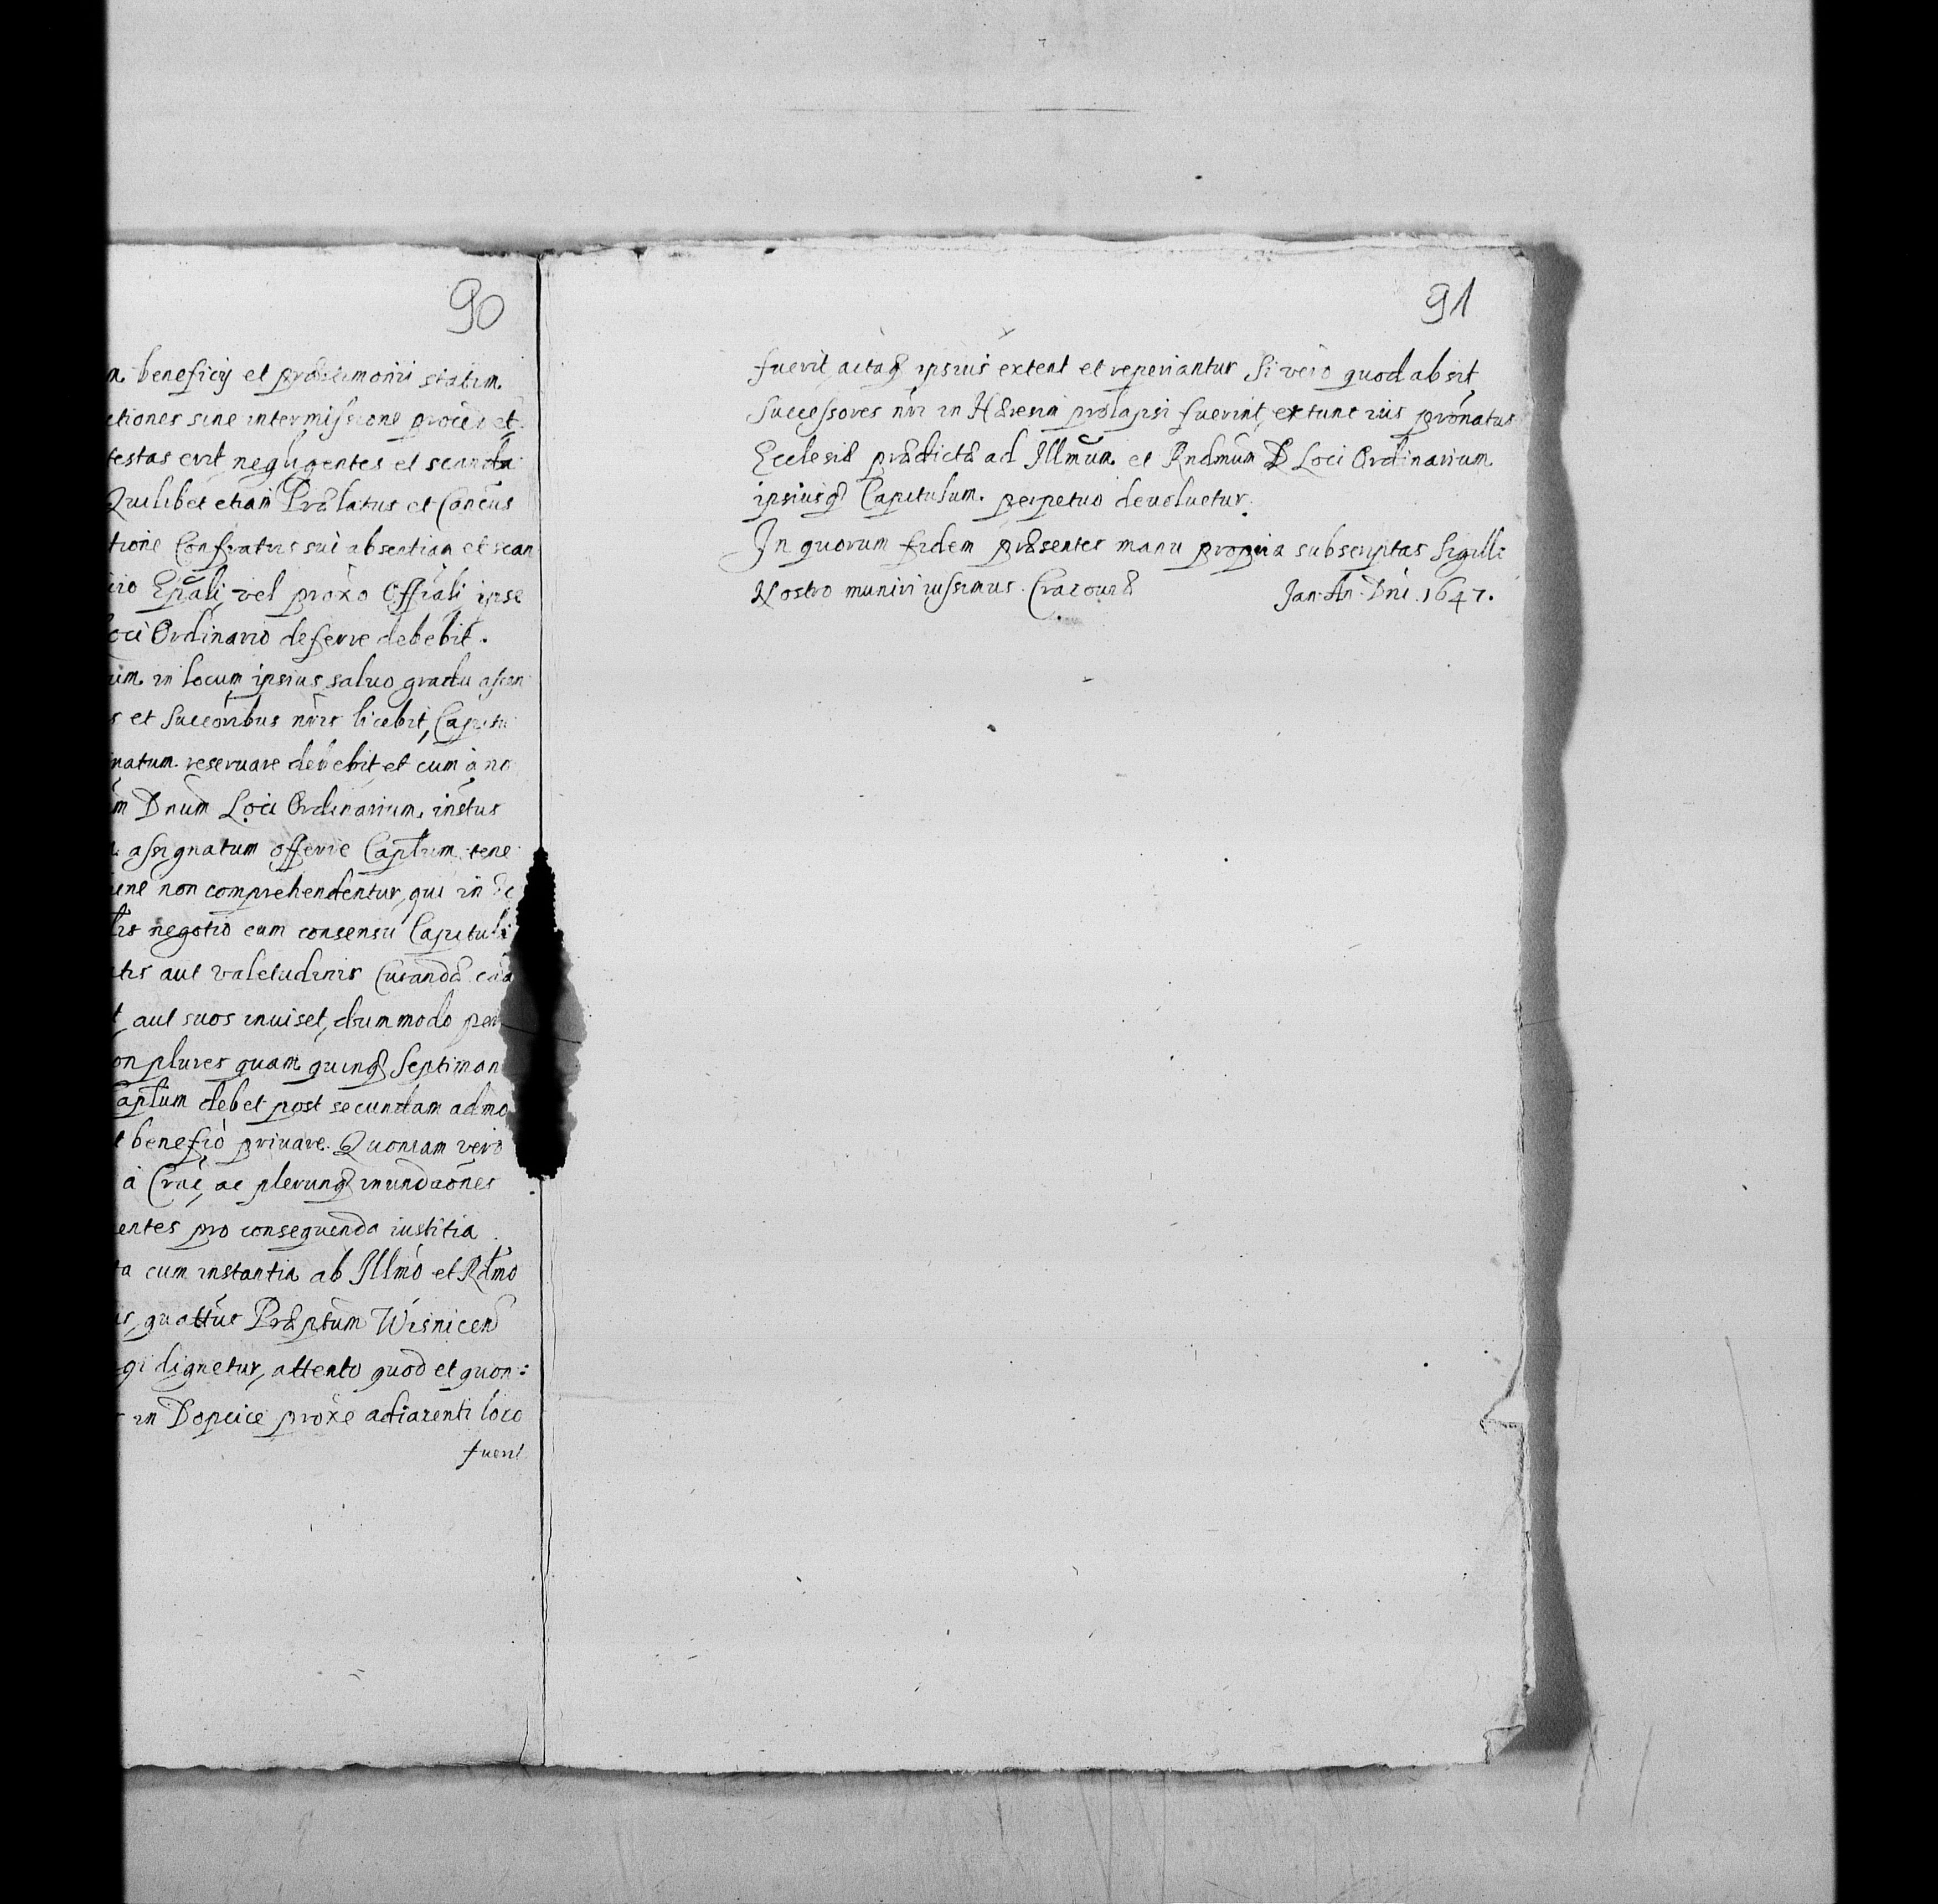 90
beneficij et præstimonii statim
ctiones sine intermissione procedet
testas erit negligentes et scanda
Quilibet etiam Prælatus et Cancus
tione Confratris sui absentiam et scan
Epali vel proxo Offiali ipse
oci Ordinario deferre debebit.
um in locum ipsius saluo gradu ascen
s et Succoribus nris licebit, Capitu
natum reseruare debebit et cum à no
m Dnum Loci Ordinarium, instus
assignatum offerre Caplum tene
une non comprehendentur, qui in
negotio cum consensu Capituli
atis aut valetudinis Curandæ
t aut suos inuiset, dummodo per
on plures quam quinq3 Septiman
aplum debet post secundam admo
benefio priuare. Quoniam vero
à Crac, ac plerunq3 inundaones
entes pro consequenda iustitia
ta cum instantia ab Illmo et Rdmo
is, quattus Præptum Wisnicen
gi dignetur, attento quod et quon:
in Dopcice proxe adiacenti loco
fuerit
91
fuerit actaq3 ipsius extent et reperiantur Si vero quod absit
Successores nri in Hæresin prolapsi fuerint, extunc ius pronatus
Ecclesiæ prædictæ ad Illmum et Rndmum D Loci Ordinarium
ipsiusq3 Capitulum perpetuo deuoluetur.
In quorum fidem præsentes manu propria subscriptas Sigillo
Nostro muniri iussimus. Cracouiæ Jan. An. Dni. 1647.